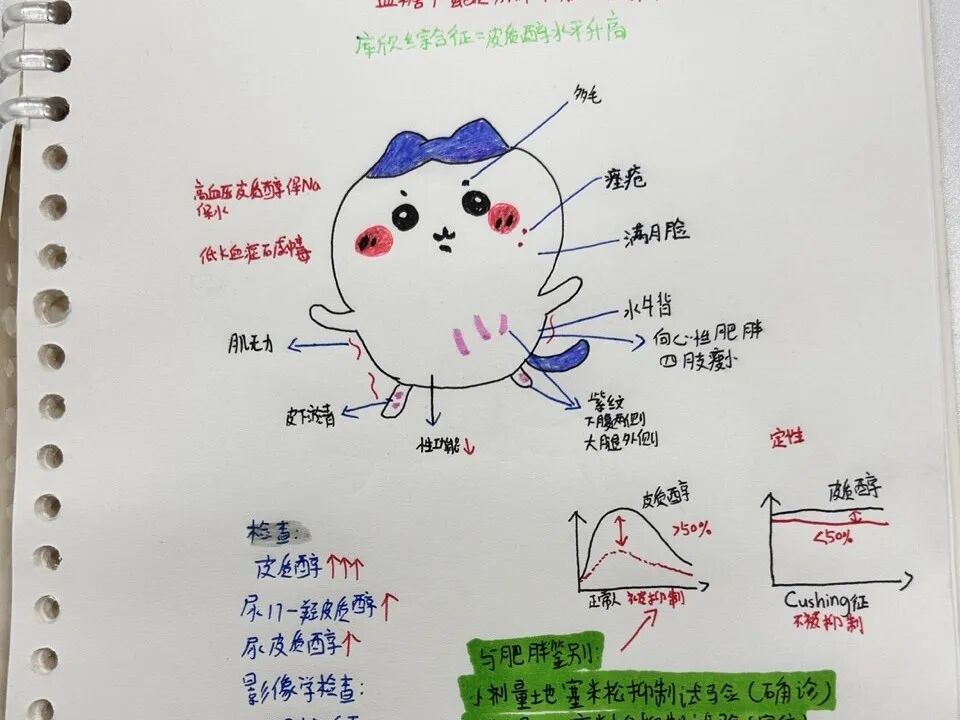 库欣综合征=皮质醇水平升高
多毛
高血压皮质醇保Na
保水
痤疮
满月脸
水牛背
向心性肥胖
四肢瘦小
肌无力
紫纹
下腹两侧
大腿外侧
性功能↓
定性
皮质醇
>50%
正常人 被抑制
皮质醇
<50%
Cushing征
不被抑制
检查:
皮质醇↑↑↑
尿17-羟皮质醇↑
尿皮质醇↑
影像学检查:
与肥胖鉴别:
小剂量地塞米松抑制试验(确诊)